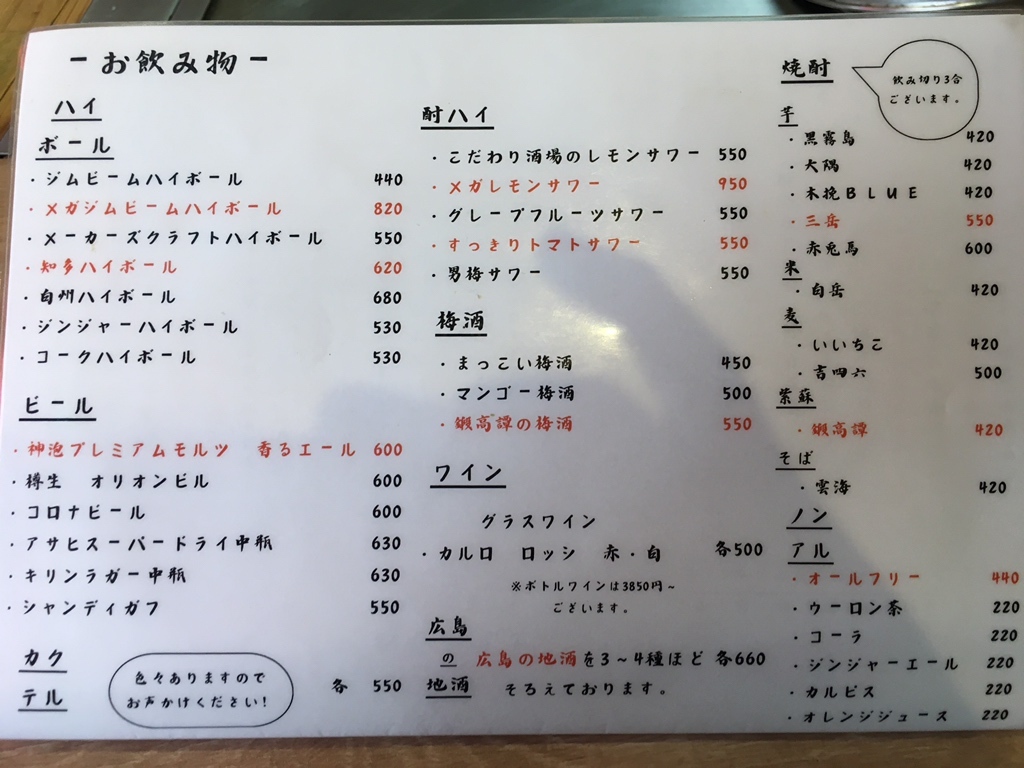 －お飲み物－
ハイ
ボール
・ジムビームハイボール 440
・メガジムビームハイボール 820
・メーカーズクラフトハイボール 550
・知多ハイボール 620
・白州ハイボール 680
・ジンジャーハイボール 530
・コークハイボール 530
ビール
・神泡プレミアムモルツ 香るエール 600
・樽生 オリオンビル 600
・コロナビール 600
・アサヒスーパードライ中瓶 630
・キリンラガー中瓶 630
・シャンディガフ 550
カク
テル
色々ありますので
お声かけください！
各 550
酎ハイ
・こだわり酒場のレモンサワー 550
・メガレモンサワー 950
・グレープフルーツサワー 550
・すっきりトマトサワー 550
・男梅サワー 550
梅酒
・まっこい梅酒 450
・マンゴー梅酒 500
・鍛高譚の梅酒 550
ワイン
グラスワイン
・カルロ ロッシ 赤・白 各500
※ボトルワインは3850円～
ございます。
広島
の
地酒
広島の地酒を3～4種ほど 各660
そろえております。
焼酎
飲み切り3合
ございます。
芋
・黒霧島 420
・大隅 420
・木挽BLUE 420
・三岳 550
・赤兎馬 600
米
・白岳 420
麦
・いいちこ 420
・吉四六 500
紫蘇
・鍛高譚 420
そば
・雲海 420
ノン
アル
・オールフリー 440
・ウーロン茶 220
・コーラ 220
・ジンジャーエール 220
・カルピス 220
・オレンジジュース 220